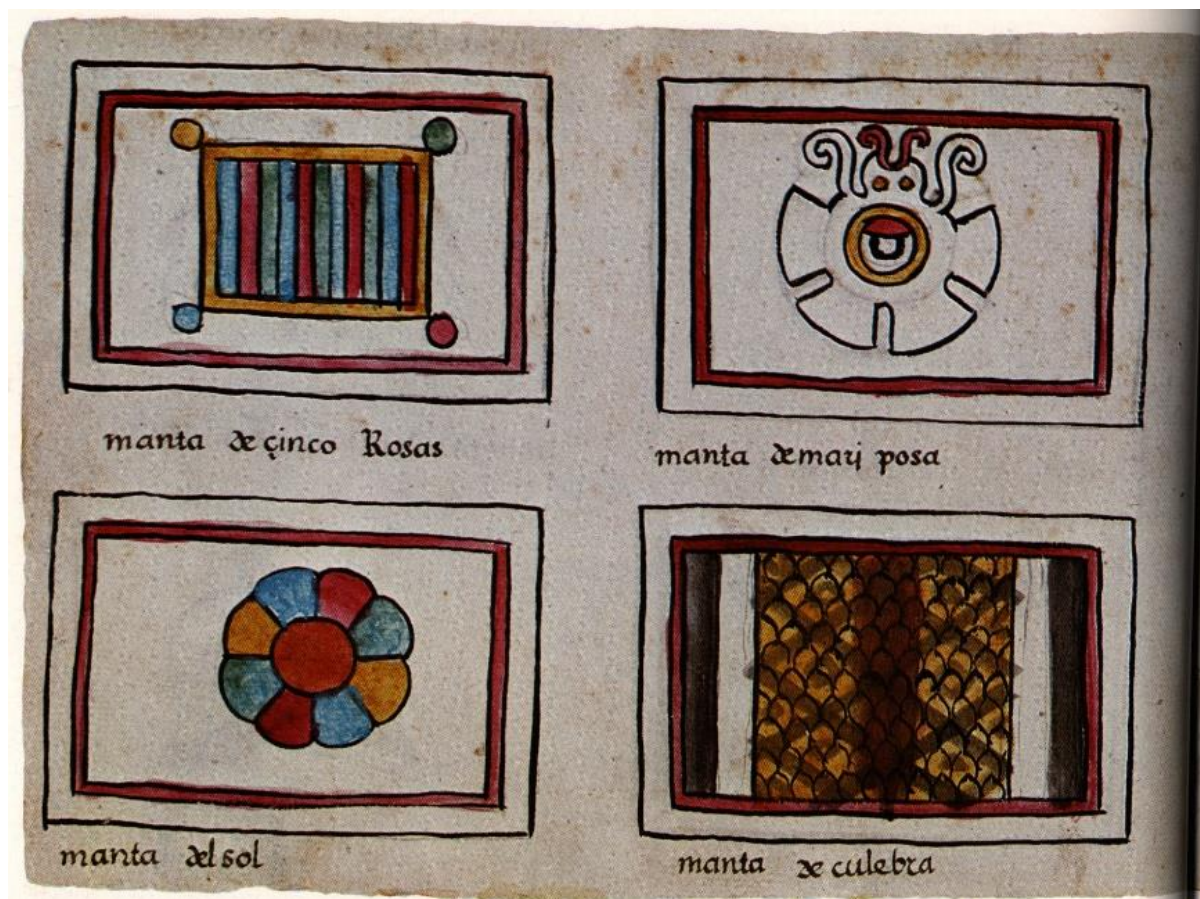 manta de çinco Rosas
manta de mari posa
manta del sol
manta de culebra